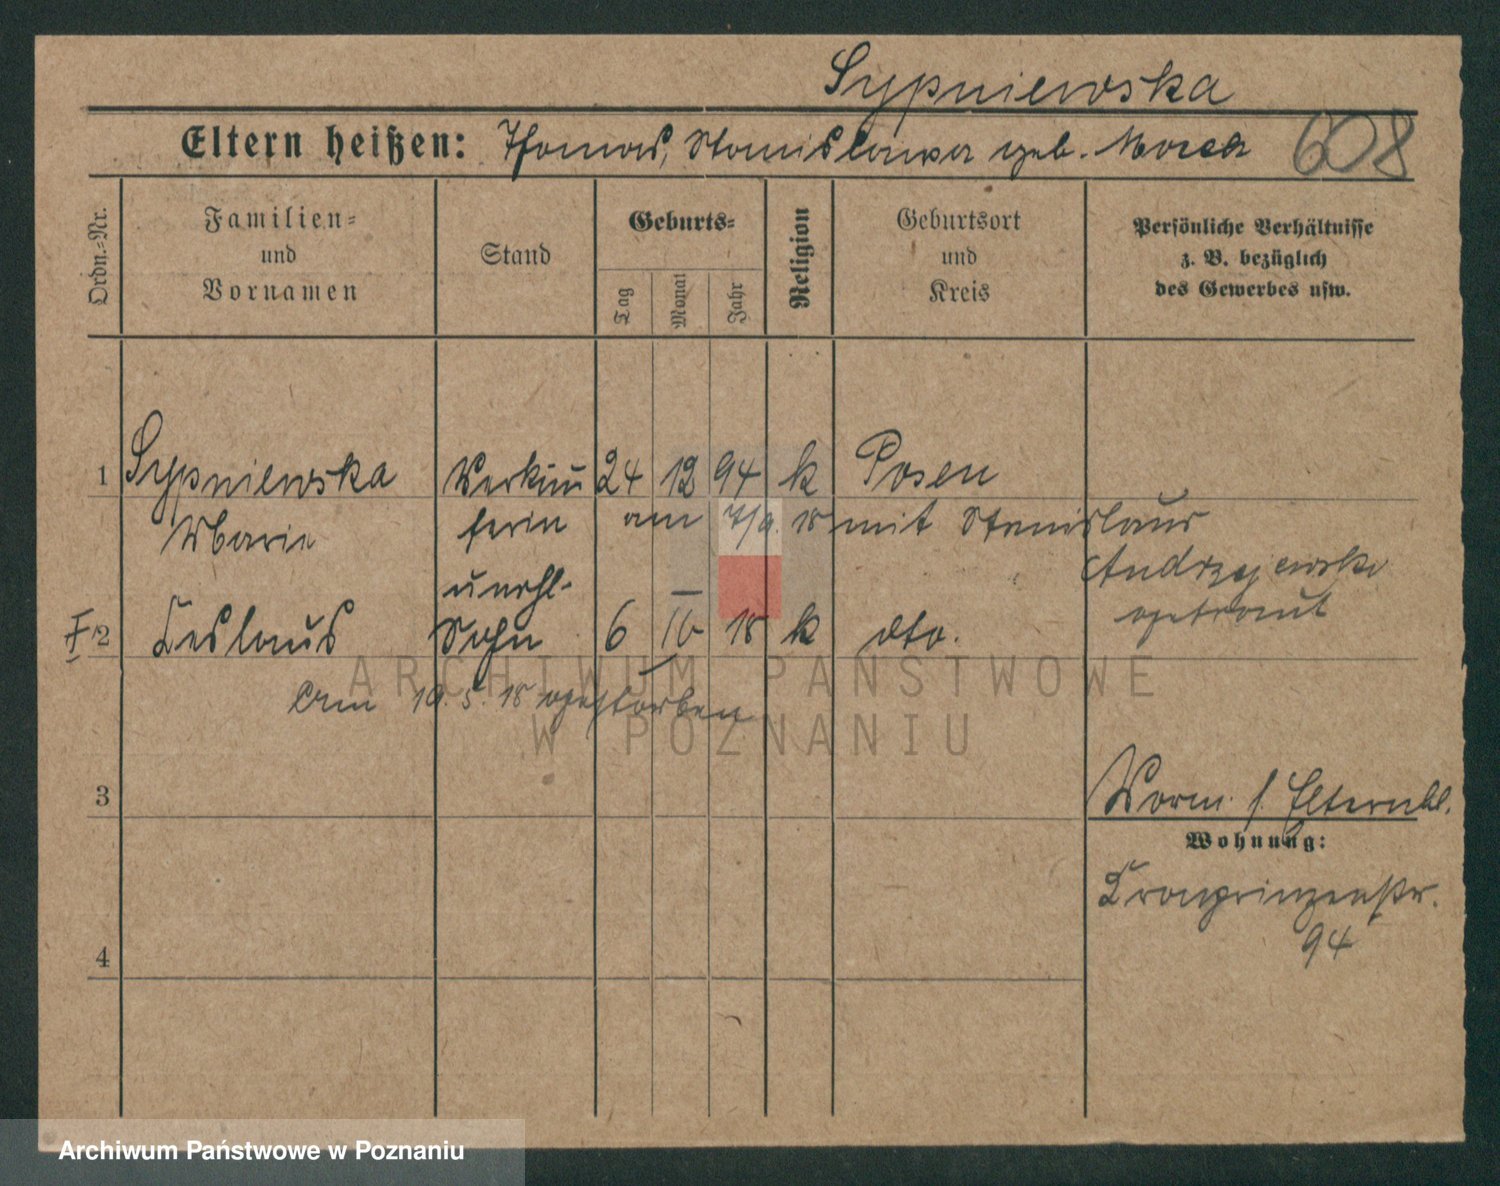 Sypniewska
Eltern heißen: Thomas, Stanislawa geb. Morek 608
Ordn.-Nr.
Familien-
und
Vornamen
Stand
Geburts-
Tag
Monat
Jahr
Religion
Geburtsort
und
Kreis
Persönliche Verhältnisse
z. B. bezüglich
des Gewerbes usw.
1 Sypniewska Verkäu 24 12 94 k Posen
Marie ferin am 7/9. 18 mit Stanislaus
Andrzejewski
getraut
unehl.
2 Ceslaus Sohn 6 18 k dto.
Am 19. 5. 18 gestorben
ARCHIWUM PAŃSTWOWE
W POZNANIU
3
Vorm. s. Elternbl.
Wohnung:
Kronprinzenstr.
94
4
Archiwum Państwowe w Poznaniu